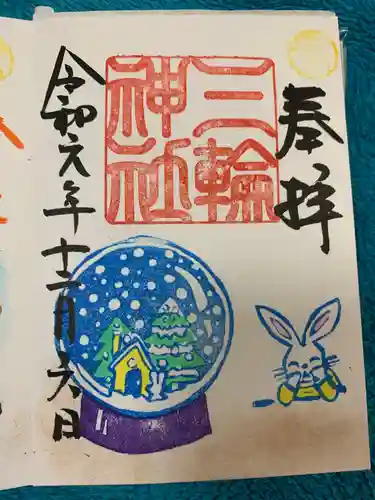 奉拝
三輪
神社
令和元年十二月六日